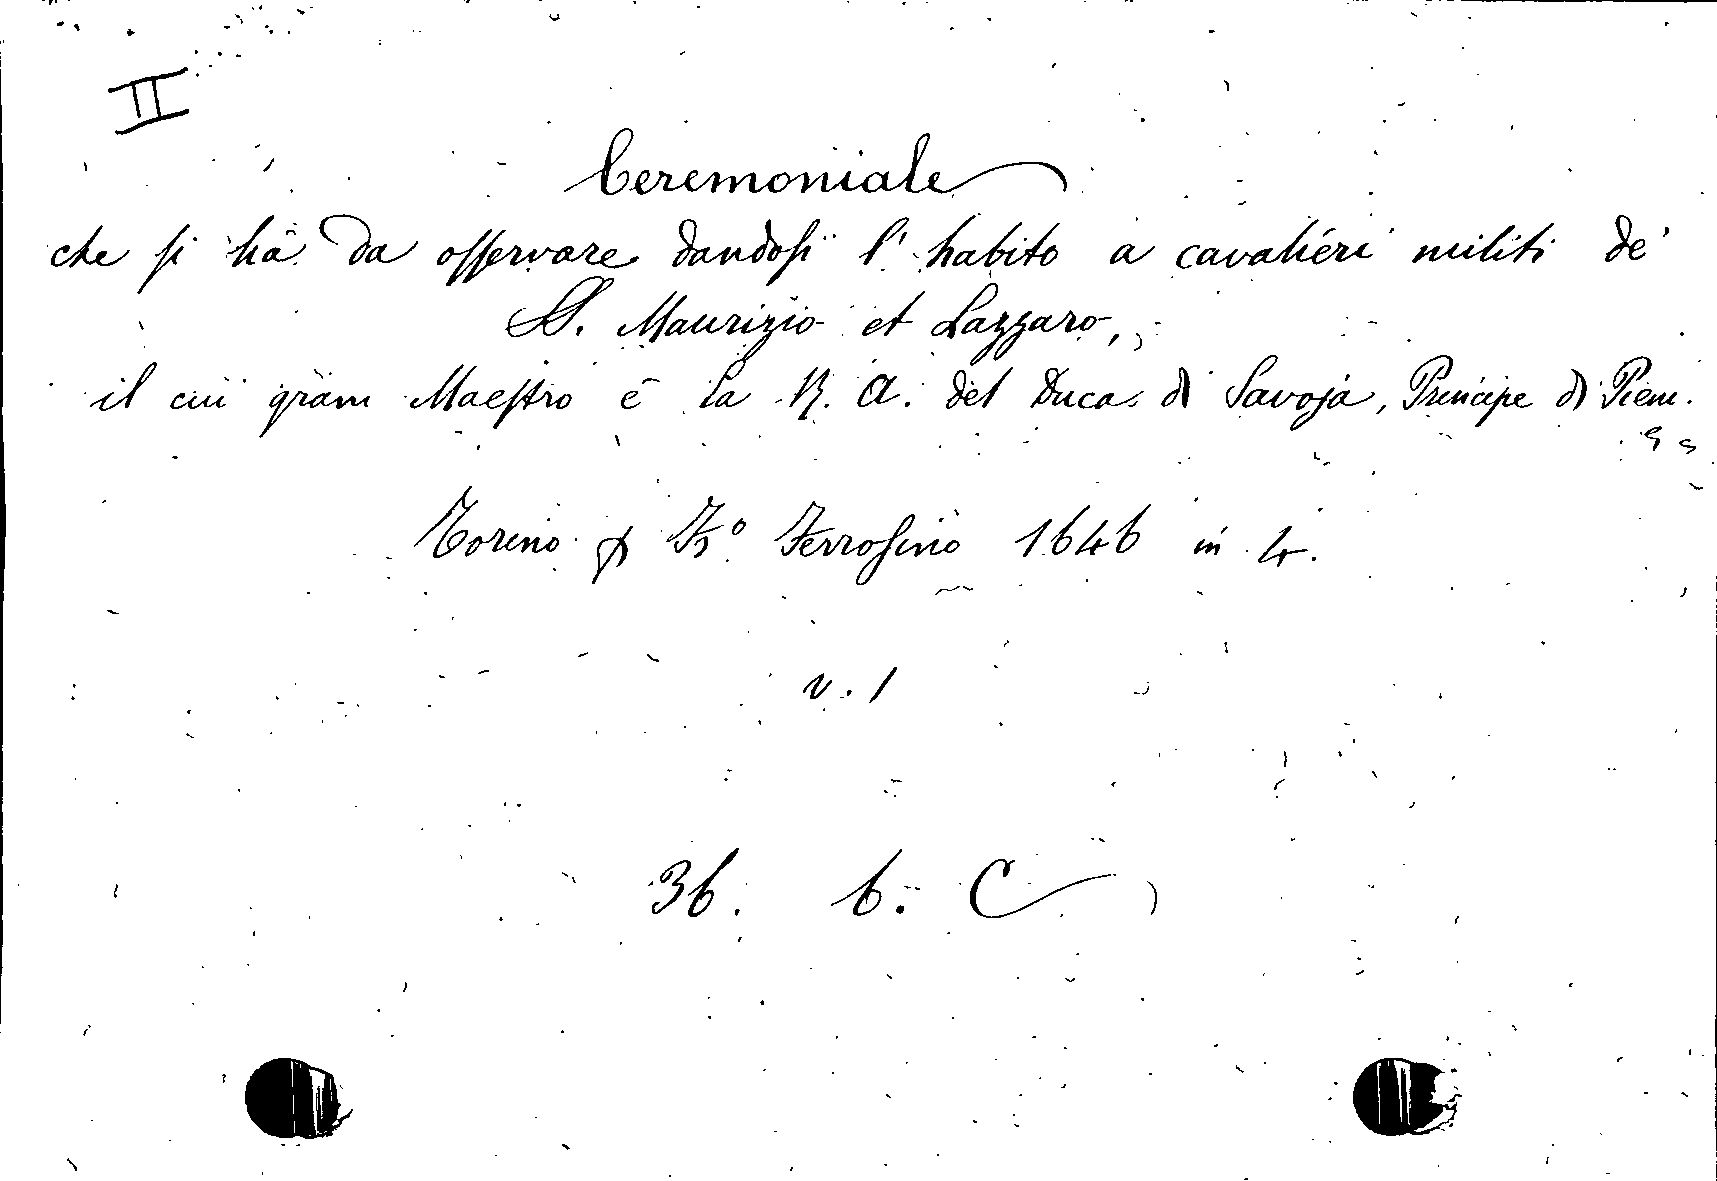 II
Ceremoniale
che si hà da osservare dandosi l'habito a cavalieri militi de'
S. Maurizio et Lazzaro,
il cui gram Maestro è la R. A. del Duca di Savoja, Principe di Piem.
Torino p Fr.º Ferrosino 1646 in 4.
v. 1
36. 6. C